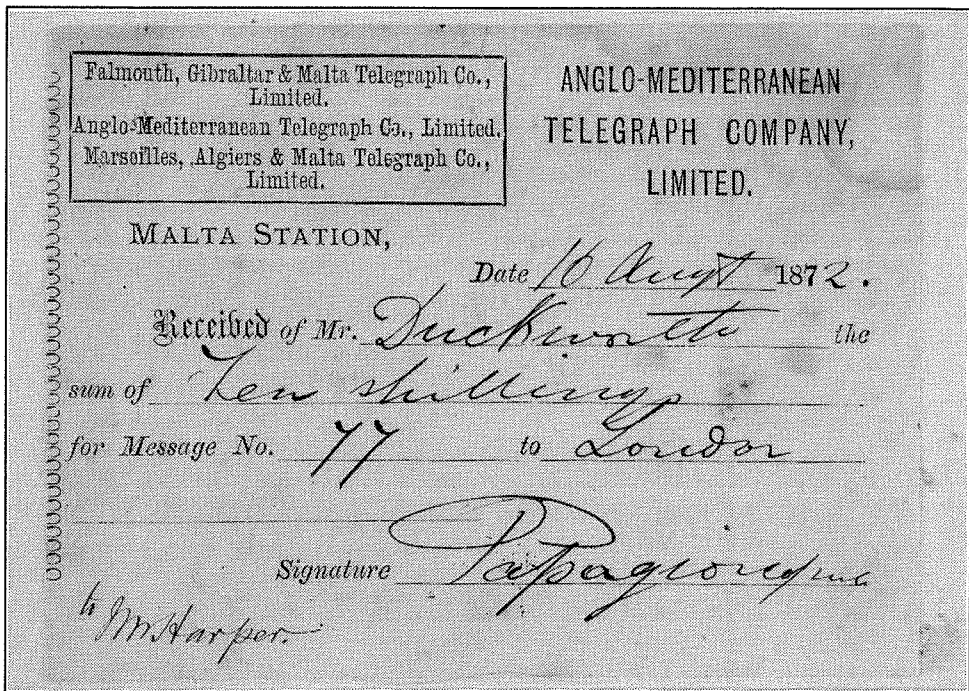 Falmouth, Gibraltar & Malta Telegraph Co.,
Limited.
Anglo-Mediterranean Telegraph Co., Limited.
Marseilles, Algiers & Malta Telegraph Co.,
Limited.
ANGLO-MEDITERRANEAN
TELEGRAPH COMPANY,
LIMITED.
MALTA STATION,
Date 16 Augt 1872.
Received of Mr. Duckworth the
sum of Ten shillings
for Message No. 77 to London
Signature
to
Mr Harper.